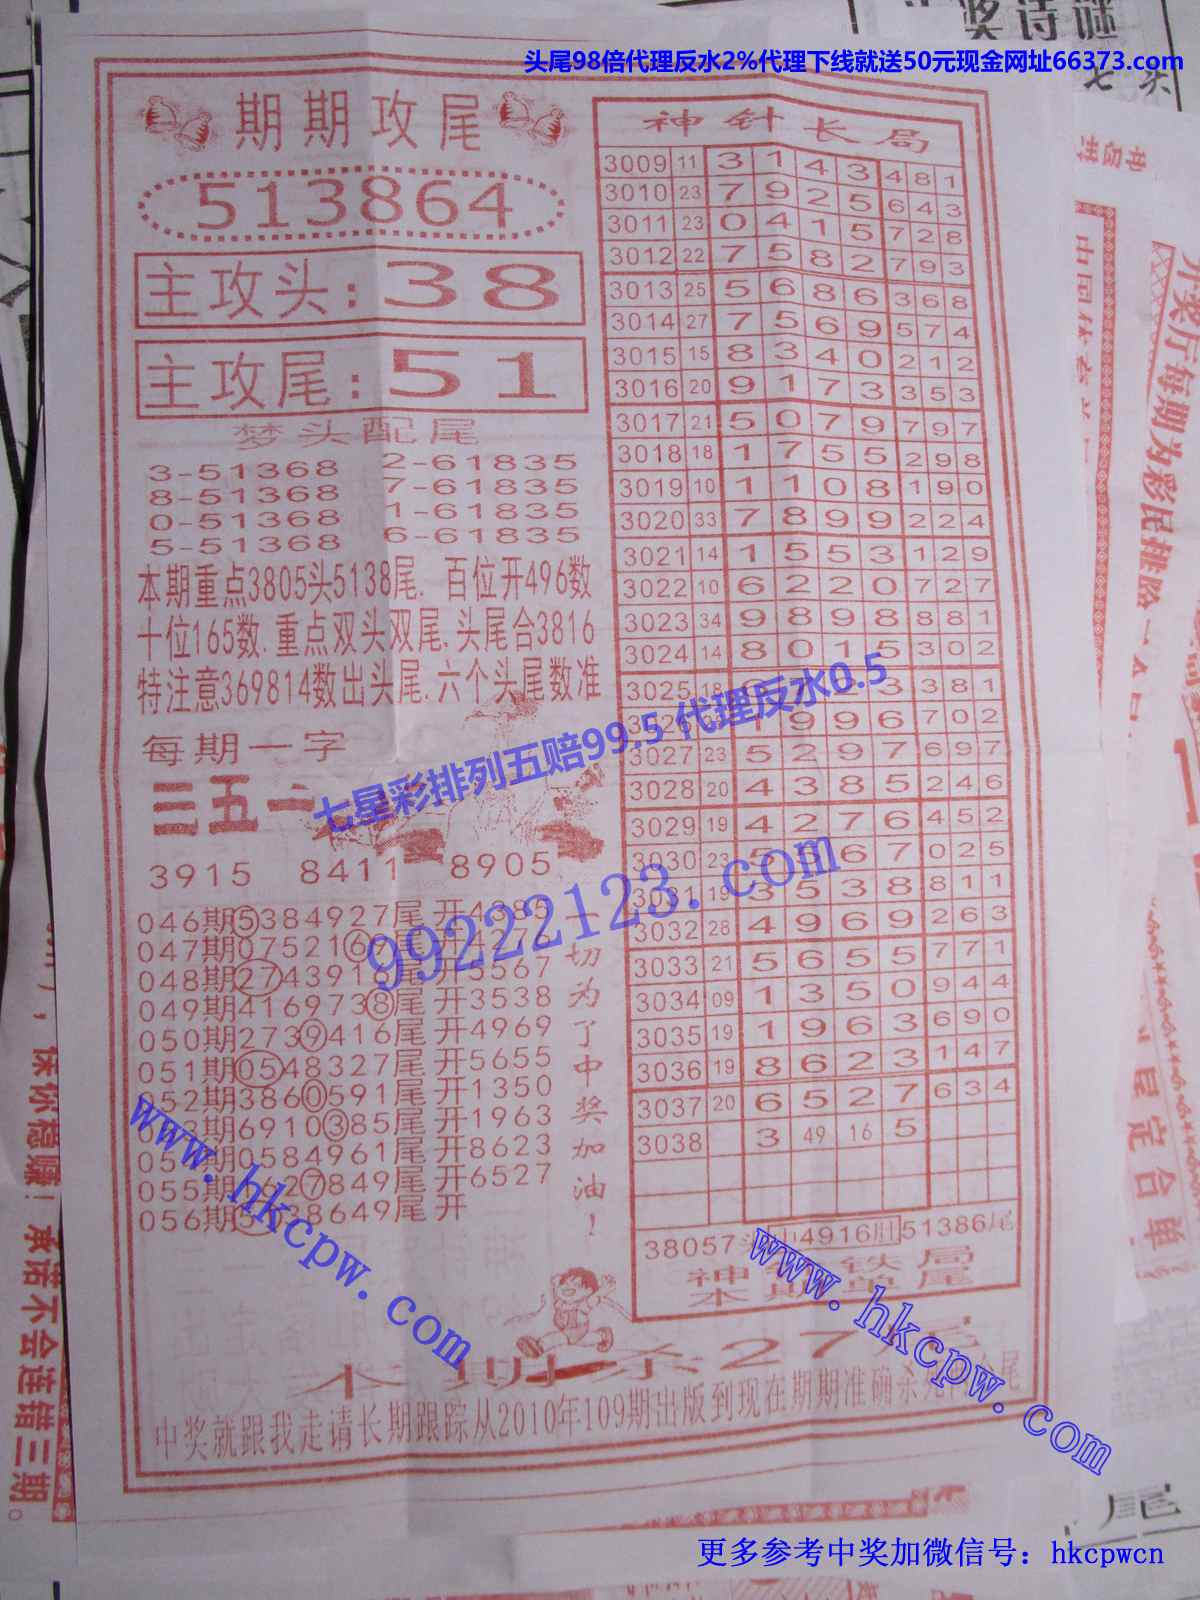 头尾98倍代理反水2%代理下线就送50元现金网址66373.com
期期攻尾
513864
主攻头:38
主攻尾:51
梦头配尾
3-51368 2-61835
8-51368 7-61835
0-51368 1-61835
5-51368 6-61835
本期重点3805头5138尾.百位开496数
十位165数.重点双头双尾.头尾合3816
特注意369814数出头尾.六个头尾数准
每期一字
三五一
3915 8411 8905
046期5384927尾开4385
047期0752169尾开4276
048期2743916尾开5567
049期4169738尾开3538
050期2739416尾开4969
051期0548327尾开5655
052期3860591尾开1350
053期6910385尾开1963
054期0584961尾开8623
055期 627849尾开6527
056期 38649尾开
一切为了中奖加油!
神针长局
3009 11 3 1 4 3 4 8 1
3010 23 7 9 2 5 6 4 3
3011 23 0 4 1 5 7 2 8
3012 22 7 5 8 2 7 9 3
3013 25 5 6 8 6 3 6 8
3014 27 7 5 6 9 5 7 4
3015 15 8 3 4 0 2 1 2
3016 20 9 1 7 3 3 5 3
3017 21 5 0 7 9 7 9 7
3018 18 1 7 5 5 2 9 8
3019 10 1 1 0 8 1 9 0
3020 33 7 8 9 9 2 2 4
3021 14 1 5 5 3 1 2 9
3022 10 6 2 2 0 7 2 7
3023 34 9 8 9 8 8 8 1
3024 14 8 0 1 5 3 0 2
3025 18 6 3 3 8 1
3026 9 9 6 7 0 2
3027 23 5 2 9 7 6 9 7
3028 20 4 3 8 5 2 4 6
3029 19 4 2 7 6 4 5 2
3030 23 5 5 6 7 0 2 5
3031 19 3 5 3 8 8 1 1
3032 28 4 9 6 9 2 6 3
3033 21 5 6 5 5 7 7 1
3034 09 1 3 5 0 9 4 4
3035 19 1 9 6 3 6 9 0
3036 19 8 6 2 3 1 4 7
3037 20 6 5 2 7 6 3 4
3038 3 49 16 5
38057头中4916肚51386尾
神 铁局
本期 尾
本期杀27
中奖就跟我走请长期跟踪从2010年109期出版到现在期期准确杀 尾
七星彩排列五赔99.5 代理反水0.5
99222123.com
www.hkcpw.com
www.hkcpw.com
更多参考中奖加微信号：hkcpwcn
奖诗谜
开奖厅每期为彩民排除一
尾定合单
保你稳赚！承诺不会连错三期。
尾